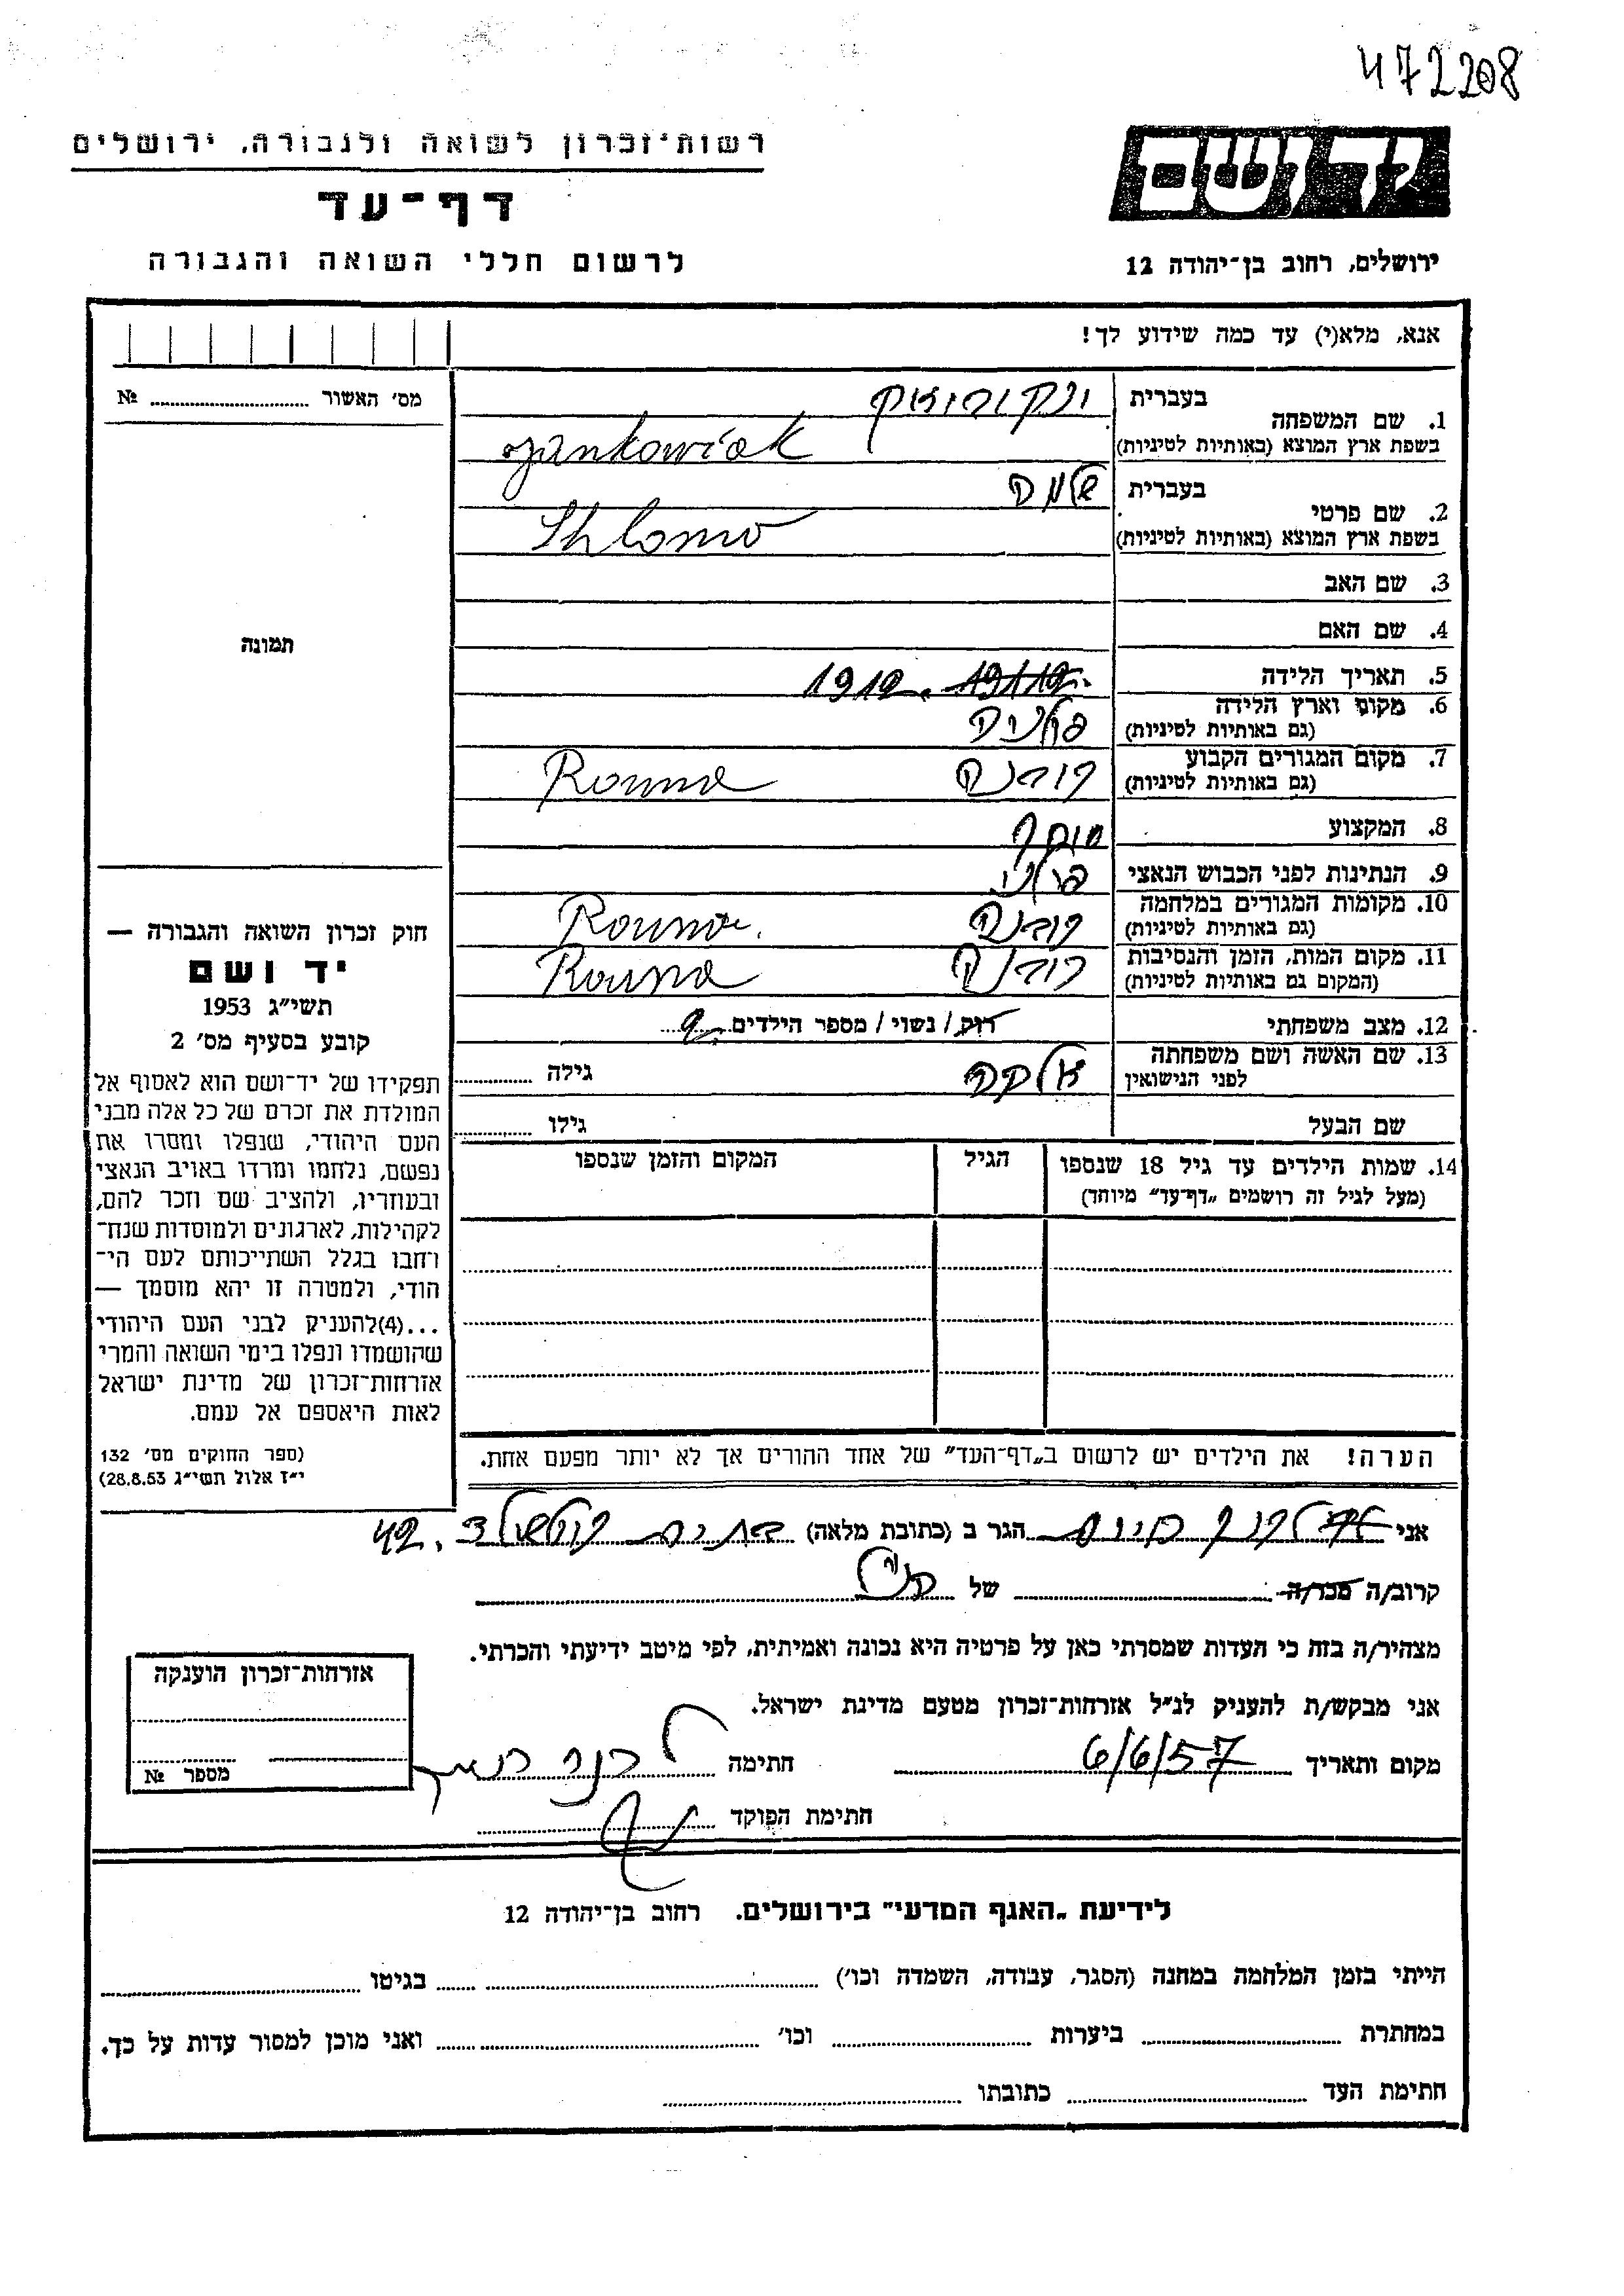 472208
יד ושם
רשות־זכרון לשואה ולגבורה, ירושלים
דף־עד
ירושלים, רחוב בן־יהודה 12
לרשום חללי השואה והגבורה
אנא, מלא(י) עד כמה שידוע לך!
מס׳ האשור № ........
תמונה
חוק זכרון השואה והגבורה —
יד ושם
תשי״ג 1953
קובע בסעיף מס׳ 2
תפקידו של יד־ושם הוא לאסוף אל
המולדת את זכרם של כל אלה מבני
העם היהודי, שנפלו ומסרו את
נפשם, נלחמו ומרדו באויב הנאצי
ובעוזריו, ולהציב שם וזכר להם,
לקהילות, לארגונים ולמוסדות שנח־
רחבו בגלל השתייכותם לעם הי־
הודי, ולמטרה זו יהא מוסמך —
...(4)להעניק לבני העם היהודי
שהושמדו ונפלו בימי השואה והמרי
אזרחות־זכרון של מדינת ישראל
לאות היאספם אל עמם.
(ספר החוקים מס׳ 132
י״ז אלול תשי״ג 28.8.53)
1. שם המשפחה בעברית ינקוביאק
בשפת ארץ המוצא (באותיות לטיניות) Jankowiak
2. שם פרטי בעברית שלמה
בשפת ארץ המוצא (באותיות לטיניות) Shlomo
3. שם האב
4. שם האם
5. תאריך הלידה 1912
6. מקום וארץ הלידה
(גם באותיות לטיניות) פולניה
7. מקום המגורים הקבוע
(גם באותיות לטיניות) רובנה Rowna
8. המקצוע סוחר
9. הנתינות לפני הכבוש הנאצי פולני
10. מקומות המגורים במלחמה
(גם באותיות לטיניות) רובנה Rowna
11. מקום המות, הזמן והנסיבות
(המקום גם באותיות לטיניות) רובנה Rowna
12. מצב משפחתי רוק / נשוי / מספר הילדים 2
13. שם האשה ושם משפחתה
לפני הנישואין גילה ........
שם הבעל גילו ........
14. שמות הילדים עד גיל 18 שנספו
(מעל לגיל זה רושמים „דף־עד״ מיוחד)
הגיל
המקום והזמן שנספו
הערה! את הילדים יש לרשום ב„דף־העד״ של אחד ההורים אך לא יותר מפעם אחת.
אני הגר ב (כתובת מלאה) 42
קרוב/ה מכר/ה של
מצהיר/ה בזה כי העדות שמסרתי כאן על פרטיה היא נכונה ואמיתית, לפי מיטב ידיעתי והכרתי.
אני מבקש/ת להעניק לנ״ל אזרחות־זכרון מטעם מדינת ישראל.
מקום ותאריך 6/6/57 חתימה
חתימת הפוקד
אזרחות־זכרון הוענקה
מספר №
לידיעת „האגף המדעי״ בירושלים. רחוב בן־יהודה 12
הייתי בזמן המלחמה במחנה (הסגר, עבודה, השמדה וכו׳) ........ בגיטו ........
במחתרת ........ ביערות ........ וכו׳ ........ ואני מוכן למסור עדות על כך.
חתימת העד ........ כתובתו ........